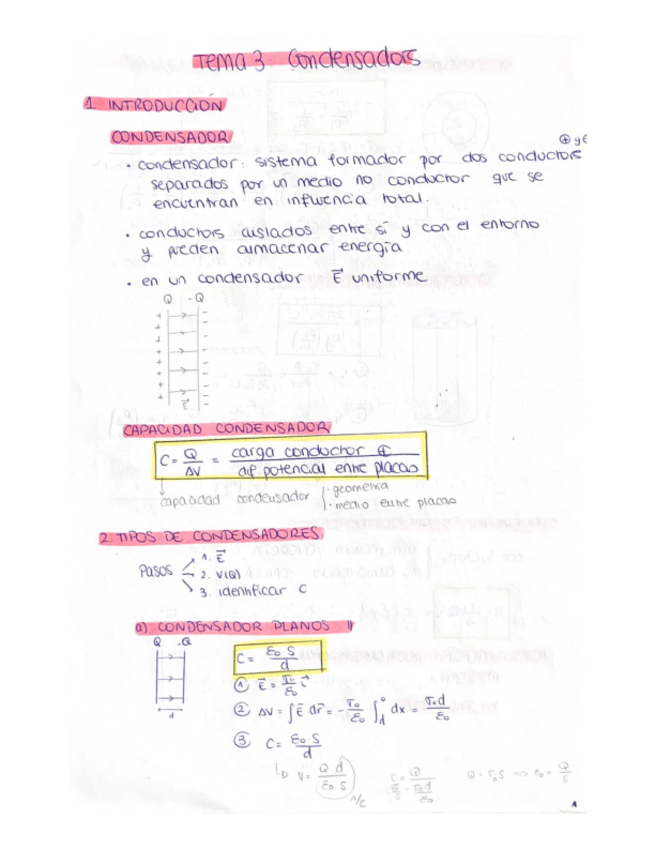 Tema 3. Condensadors
1. INTRODUCCION
CONDENSADOR
⊕ y ⊖
· condensador: sistema formador por dos conductors
separados por un medio no conductor que se
encuentran en influencia total.
· conductors aislados entre sí y con el entorno
y pueden almacenar energía
· en un condensador E⃗ uniforme
Q -Q
E⃗
CAPACIDAD CONDENSADOR
C = Q/ΔV = carga conductor ⊕ / dif potencial entre placas
capacidad condensador · geometria
· medio entre placas
2. TIPOS DE CONDENSADORES
Pasos 1. E⃗
2. V(Q)
3. identificar C
a) CONDENSADOR PLANOS ||
Q -Q
d
C = ε₀ S / d
① E⃗ = σ₀/ε₀ i⃗
② ΔV = ∫ E⃗ dr⃗ = - σ₀/ε₀ ∫_d^0 dx = σ₀d/ε₀
③ C = ε₀·S / d
V = Q d / ε₀ S
N/C
C = Q
σ₀d/ε₀
Q = σ₀S ⇒ σ₀ = Q/S